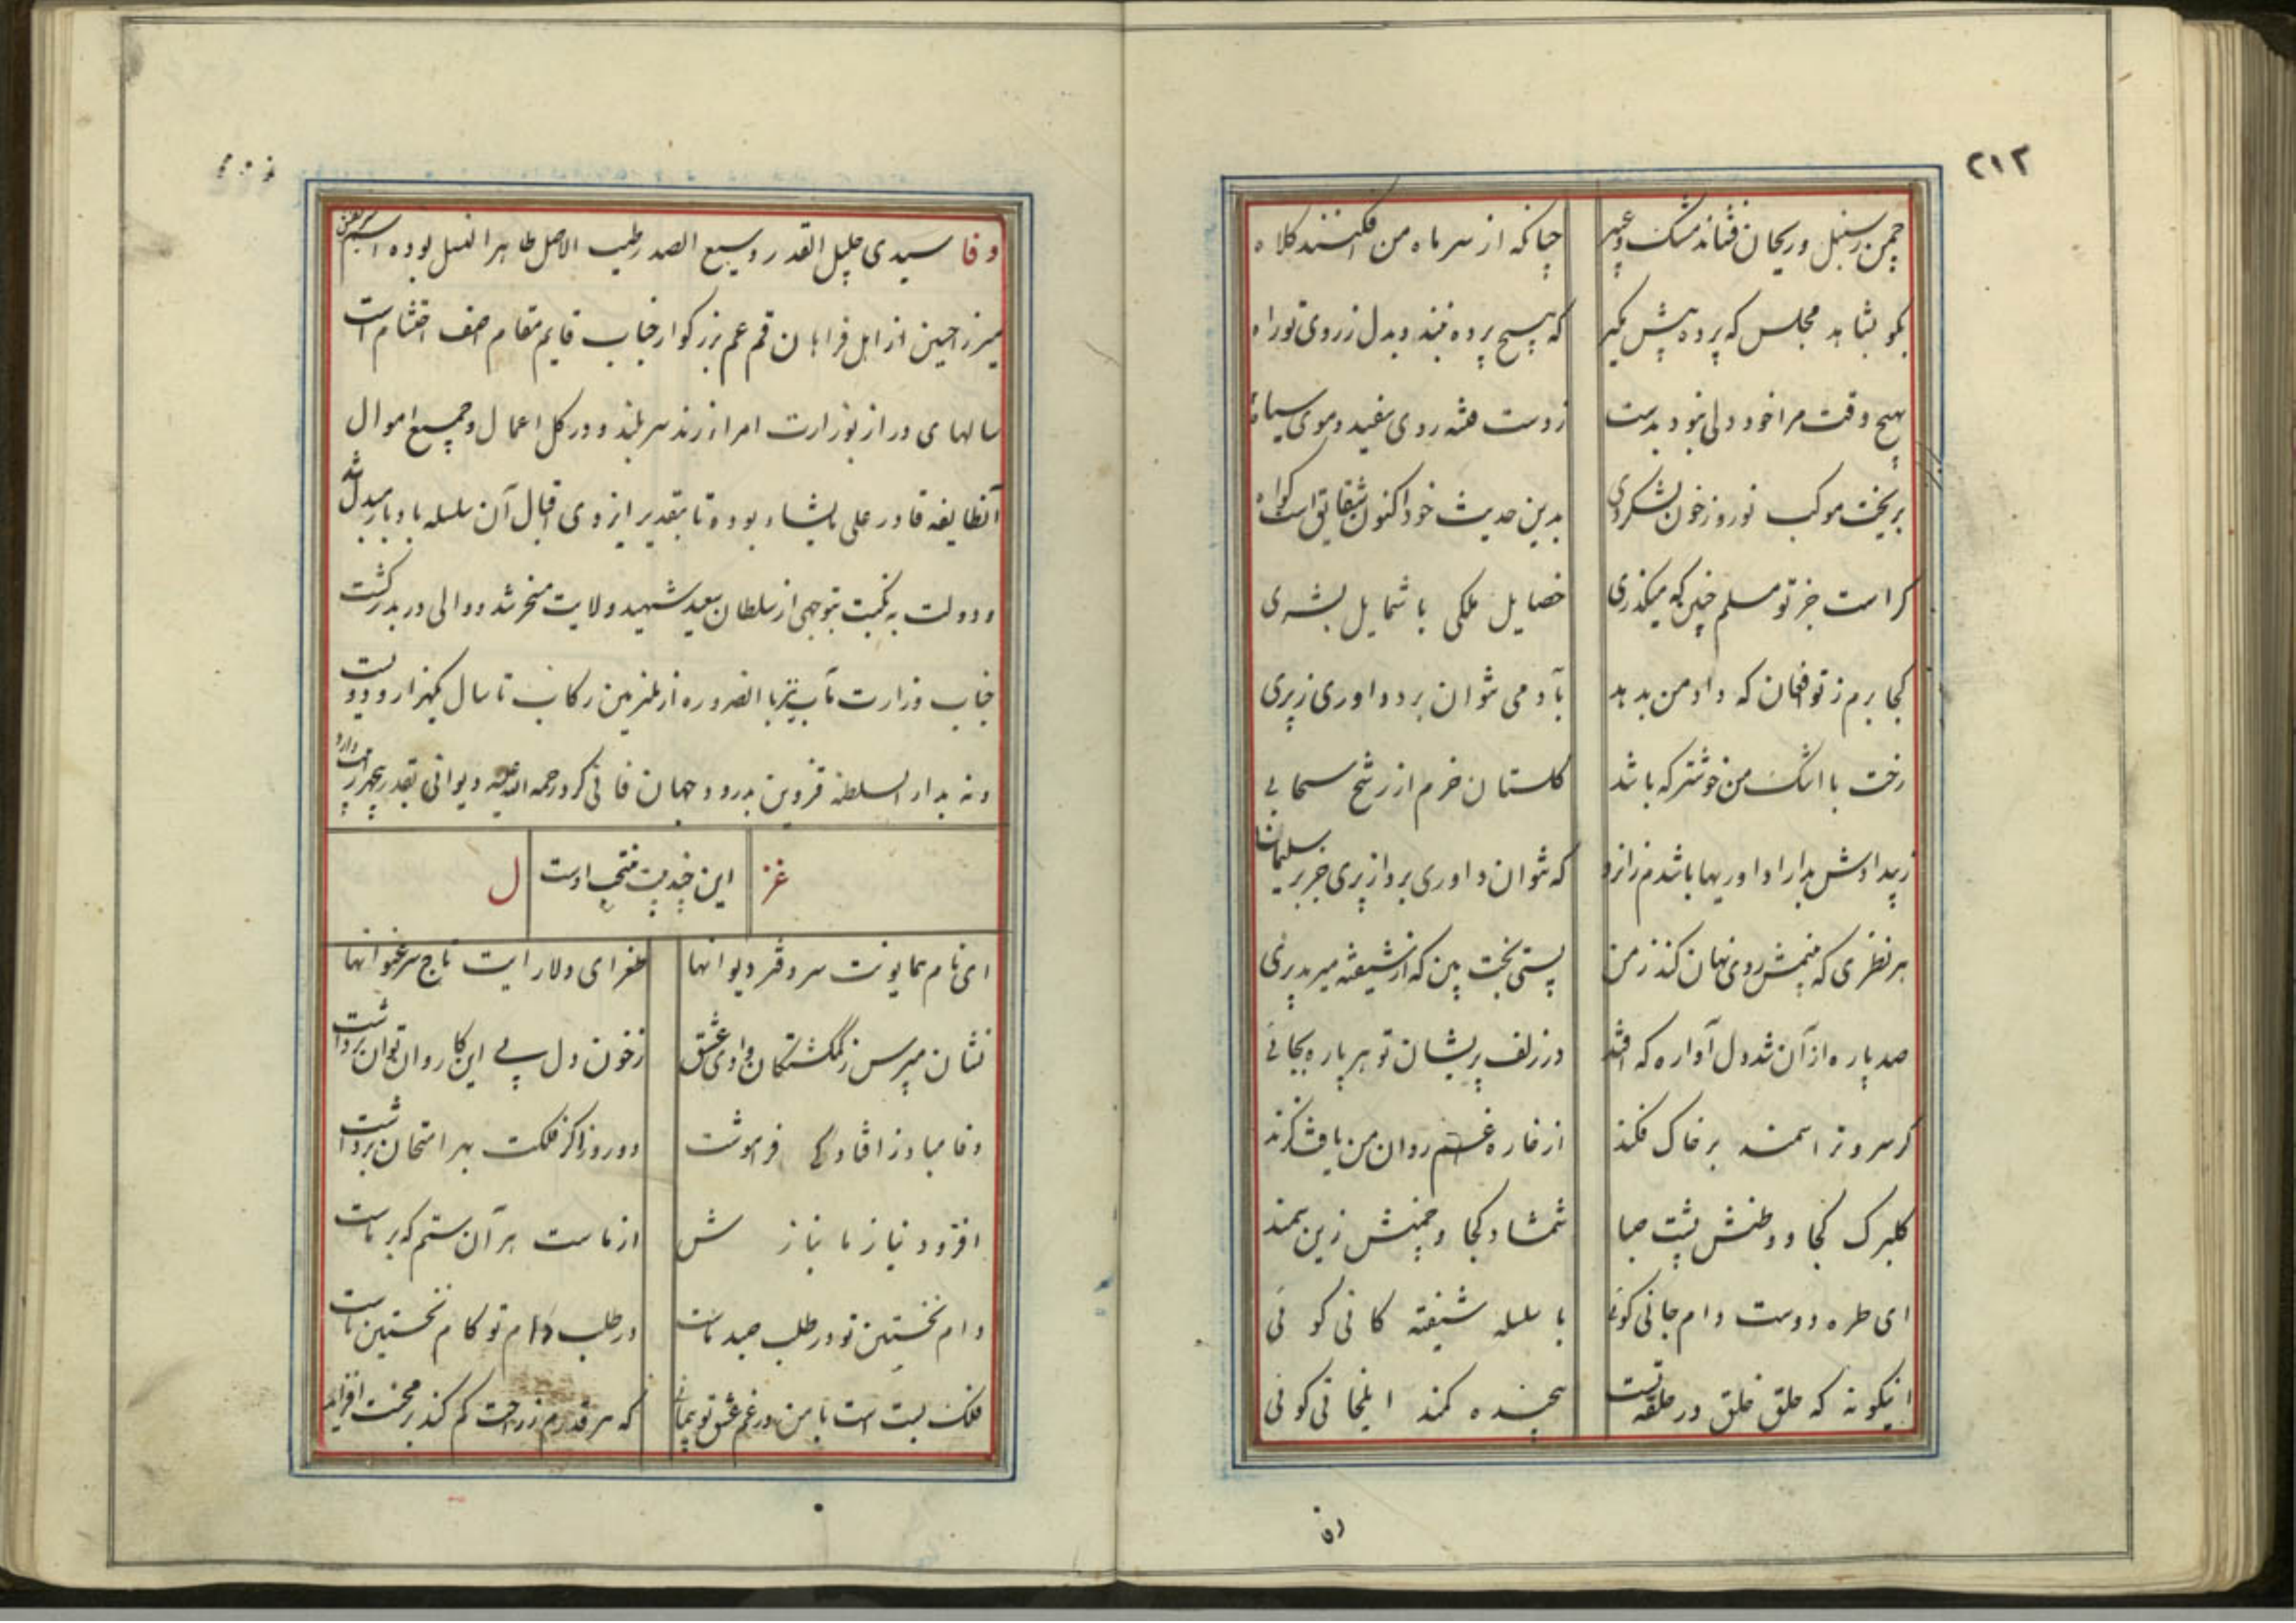 ۲۱۲
چمن ز سنبل و ریحان فشاند مشک و عبیر چنانکه از سر ماه من افکنند کلاه
بگو بشاهد مجلس که پرده پیش مگیر که هیچ پرده نبندد بدل ز روی تو راه
بهیچ وقت مرا خود دلی نبود بدست ز دست فتنه روی سفید و موی سیاه
بریخت موکب نوروز خون لشکر دی بدین حدیث خود اکنون شقایق است گواه
کراست جز تو مسلم چنین که میگذری خصایل ملکی با شمایل بشری
کجا برم ز تو افغان که داد من بدهد بآدمی نتوان برد داوری ز پری
رخت با اشک من خوشتر که باشد گلستان خرم از رشح سحابی
ز بیدادش بدارا داوریها باشدم زانرو که نتوان داوری برد از پری جز بر سلیمانها
هر نظری که بینمش روی نهان کند ز من پستی بخت بین که از شیفته میرمد پری
صد پاره از آن شد دل آواره که افتد در زلف پریشان تو هر پاره بجائی
گر سرو تر اسمند بر خاک فکند از خاره غم روان من یافت گزند
گلبرگ کجا و وطنش پشت صبا شمشاد کجا و چمنش زین سمند
ای طره دوست دام جانی گوئی با سلسله شیفته کانی گوئی
اینگونه که حلق خلق در حلقه تست پیچنده کمند ایلخانی گوئی
وفا سیدی جلیل القدر وسیع الصدر طیب الاصل طاهر النسل بوده اسم شریفش
میرزا حسین از اهل فراهان قم عم بزرگوار جناب قایم مقام آصف احتشام است
سالهای دراز بوزارت امراء زند سر بلند و در کل اعمال و جمیع اموال
آنطایفه قادر علی مایشاء بوده تا بتقدیر ایزدی اقبال آن سلسله با دبار مبدل شد
و دولت به نکبت بتوجهی از سلطان سعید شهید ولایت مسخر شد و والی در بدر گشت
جناب وزارت مآب نیز بالضروره از ملتزمین رکاب تا سال یکهزار و دویست
و نه بدار السلطنه قزوین بدرود جهان فانی کرد رحمه الله علیه دیوانی بقدر پنجهزار بیت دارد
غز این چند بیت منتخب اوست ل
ای نام همایونت سر دفتر دیوانها طغرای دلارایت تاج سر عنوانها
نشان مپرس ز گمگشتگان وادی عشق ز خون دل پی این کاروان توان برداشت
وفا مباد ز افتادگی فراموشت دو روز اگر فلکت بهر امتحان برداشت
افزود نیاز ما نیازش از ماست هر آن ستم که بر ماست
دام نخستین تو در طلب صید ماست در طلب دام تو کام نخستین ماست
فلک بست است با من در غم عشق تو پیمانی که هر قدرم ز راحت کم کند بر محنت افزاید